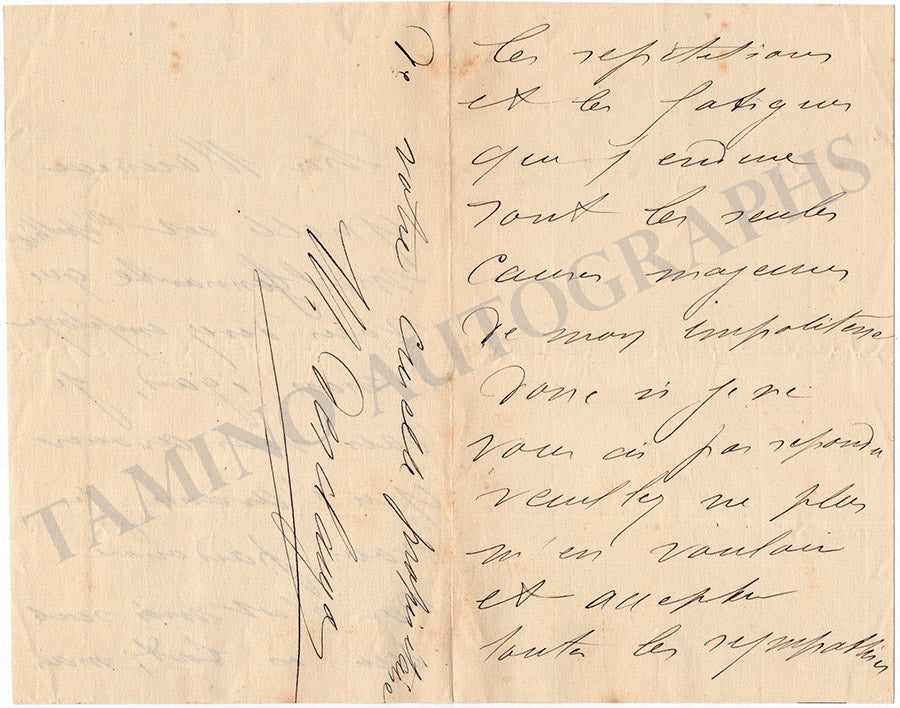 les repetitions
et les fatigues
que j'endure
sont les seules
causes majeures
de mon impolitesse
donc si je ne
vous ai pas repondu
veuillez ne plus
m'en vouloir
et accepter
toutes les sympathies
De votre cruelle propriétaire
TAMINO AUTOGRAPHS